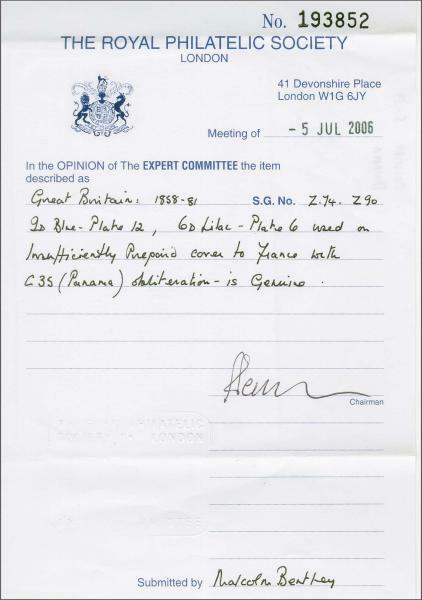 No. 193852
THE ROYAL PHILATELIC SOCIETY
LONDON
41 Devonshire Place
London W1G 6JY
Meeting of - 5 JUL 2006
In the OPINION of The EXPERT COMMITTEE the item
described as
Great Britain: 1858-81 S.G. No. Z.74. Z90
2D Blue - Plate 12, 6D Lilac - Plate 6 used on
Insufficiently Prepaid cover to France with
C35 (Panama) obliteration - is Genuine.
Chairman
THE ROYAL PHILATELIC
SOCIETY, LONDON
Submitted by Malcolm Bentley